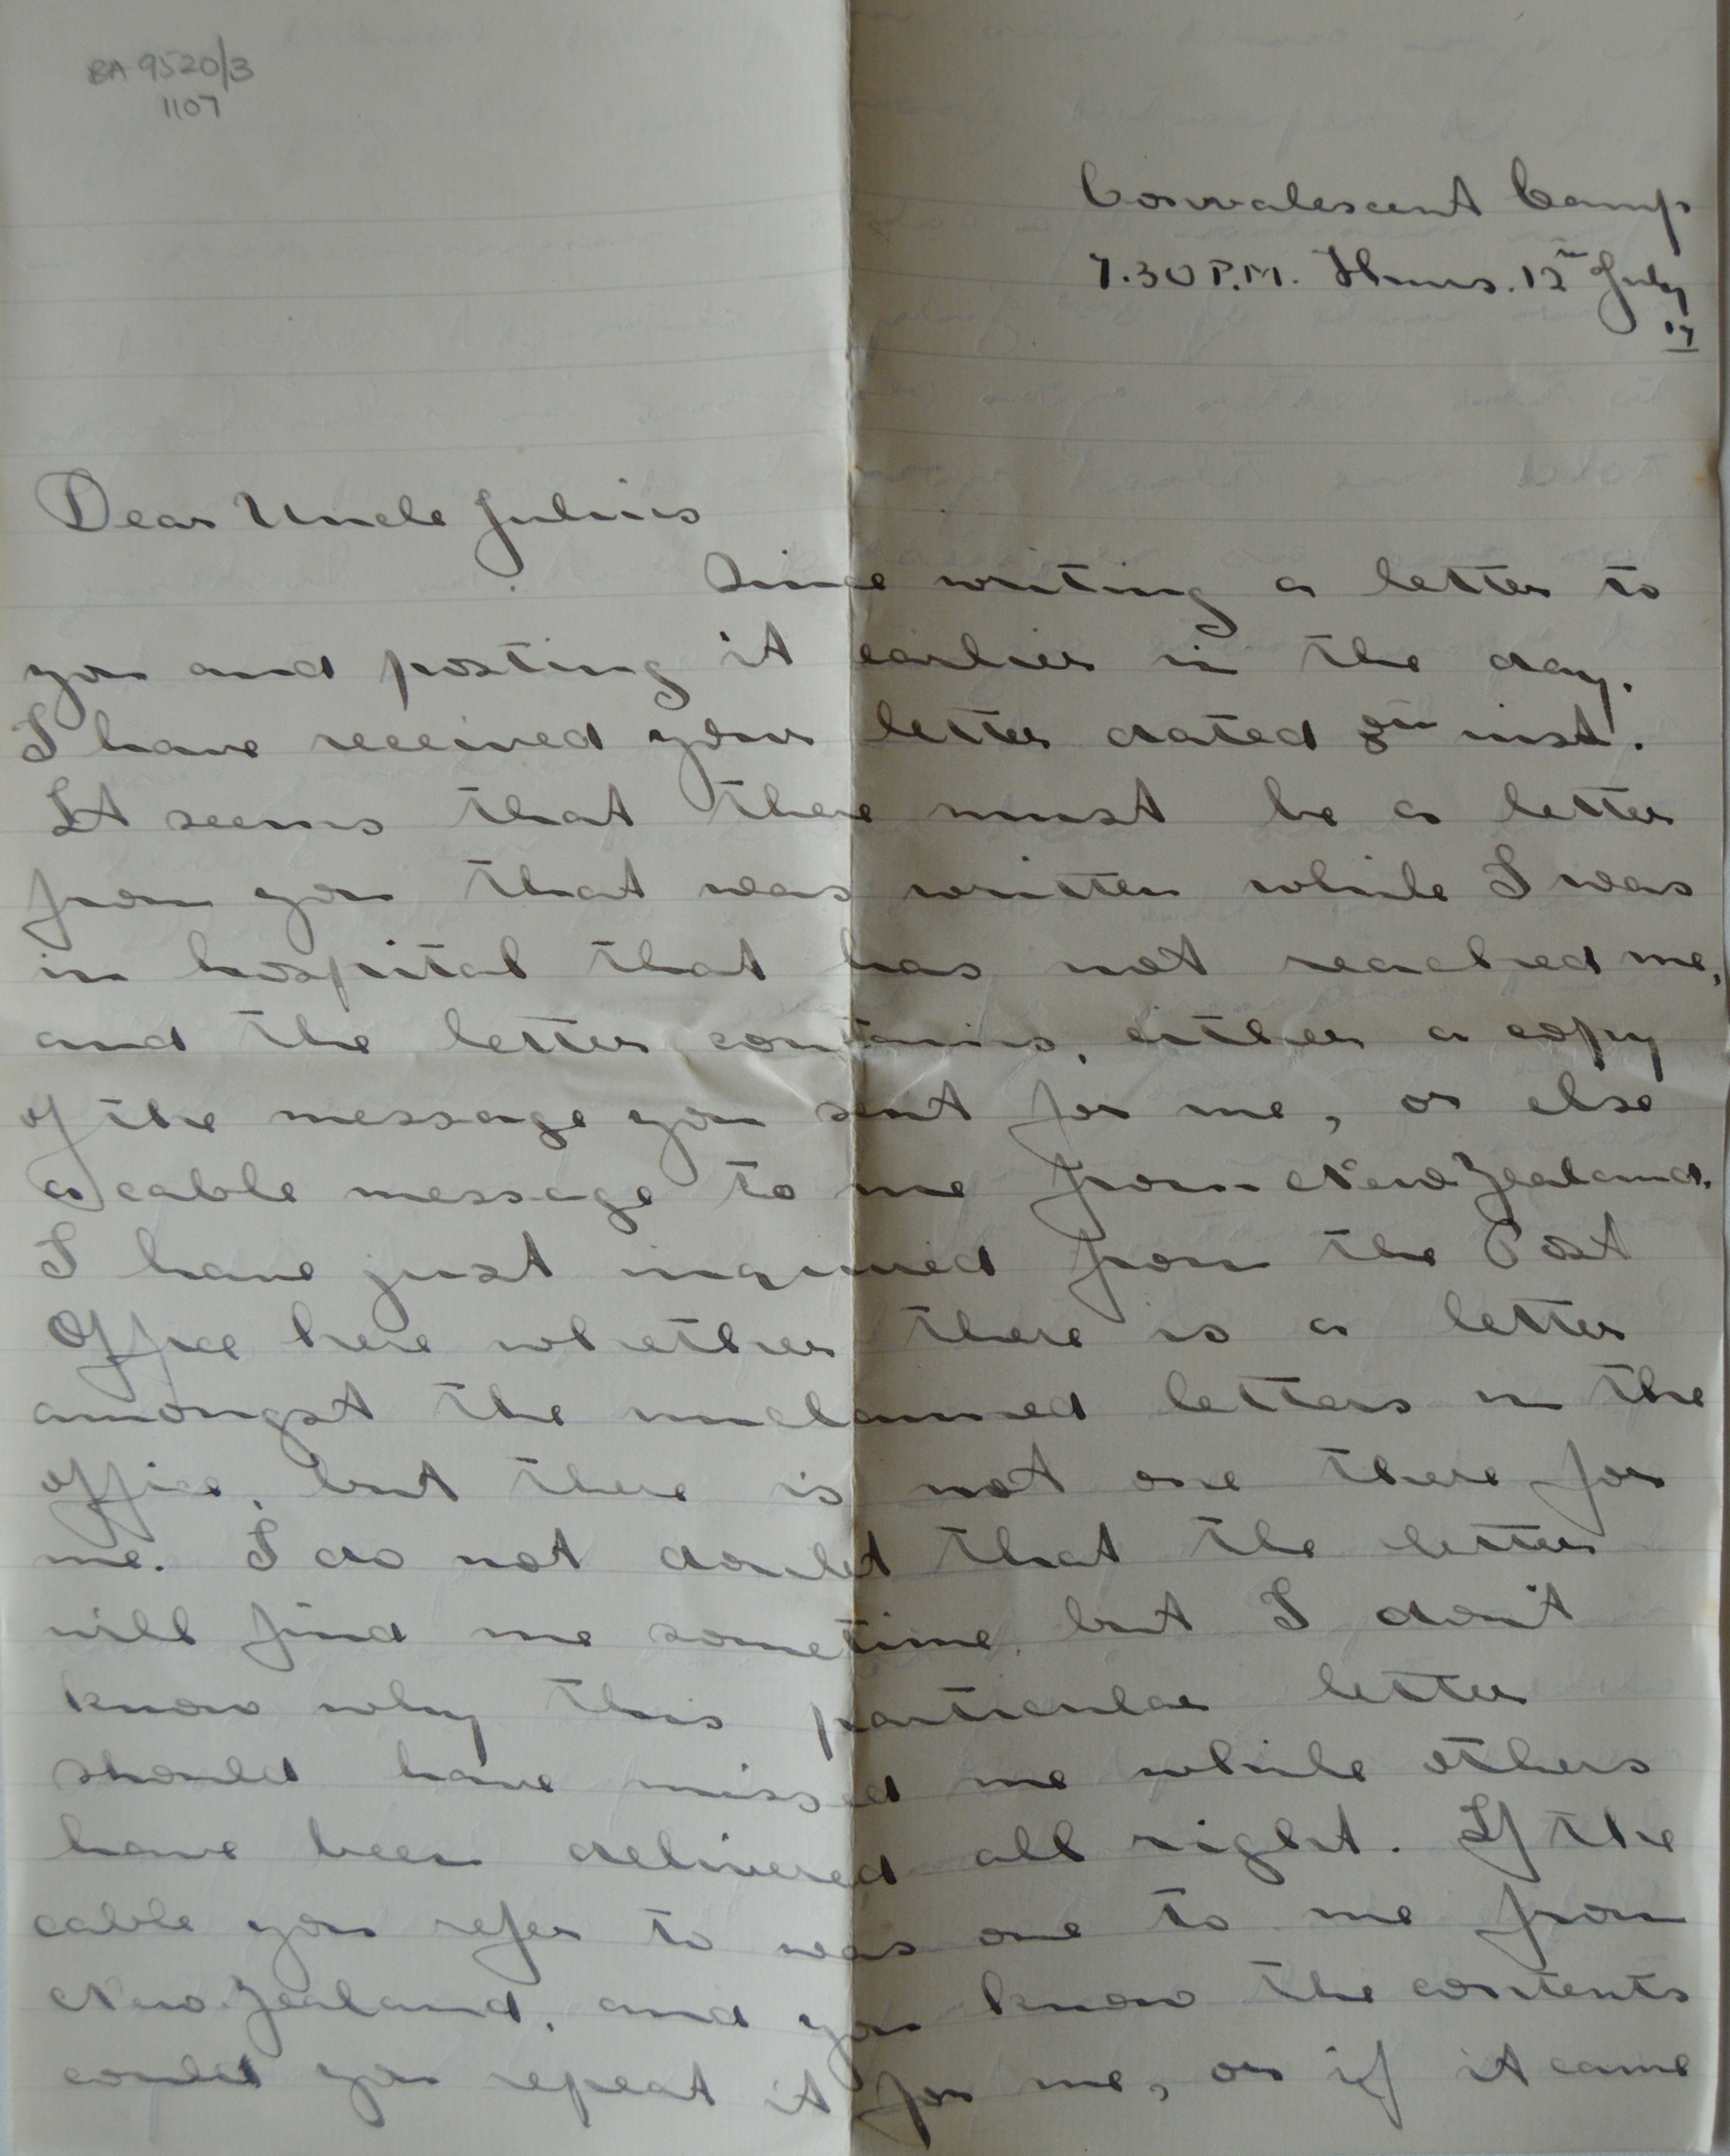 BA 9520/3
1107
Convalescent Camp
7.30 P.M. Thurs. 12th July
17
Dear Uncle Julius
Since writing a letter to
you and posting it earlier in the day,
I have received your letter dated 8th inst.
It seems that there must be a letter
from you that was written while I was
in hospital that has not reached me,
and the letter contains, either a copy
of the message you sent for me, or else
a cable message to me from New Zealand.
I have just inquired from the Post
Office here whether there is a letter
amongst the unclaimed letters in the
office, but there is not one there for
me. I do not doubt that the letter
will find me sometime, but I don't
know why this particular letter
should have missed me while others
have been delivered all right. If the
cable you refer to was one to me from
New Zealand, and you know the contents
could you repeat it for me, or if it came